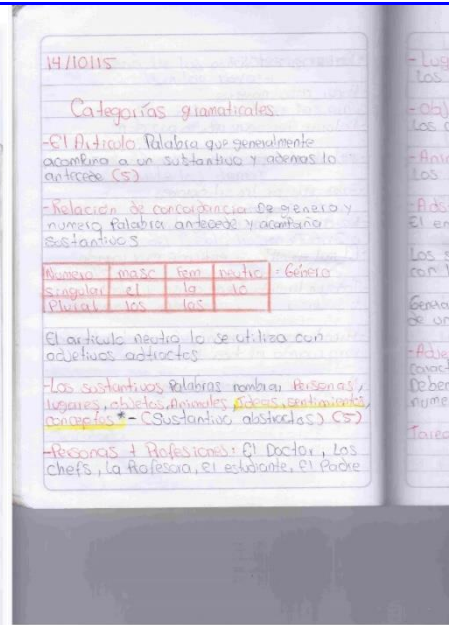 14/10/15
Categorías gramaticales
-El Articulo Palabra que generalmente
acompaña a un sustantivo y ademas lo
antecede (S)
-Relación de concordancia De genero y
numero Palabra antecede y acompaña
sustantivos
Numero masc Fem neutro = Género
singular el la lo
Plural los las
El articulo neutro lo se utiliza con
adjetivos
-Los sustantivos Palabras nombrar Personas,
lugares, objetos, Animales, Ideas, sentimientos,
conceptos *- (Sustantivo abstractos) (S)
-Personas + Profesiones: El Doctor, Los
chefs, La Profesora, El estudiante, El Padre
- Lug
Los
- Obj
Los
- Ani
Los
El
Los
con
de un
- Adje
caract
Deben
nume
Tarea